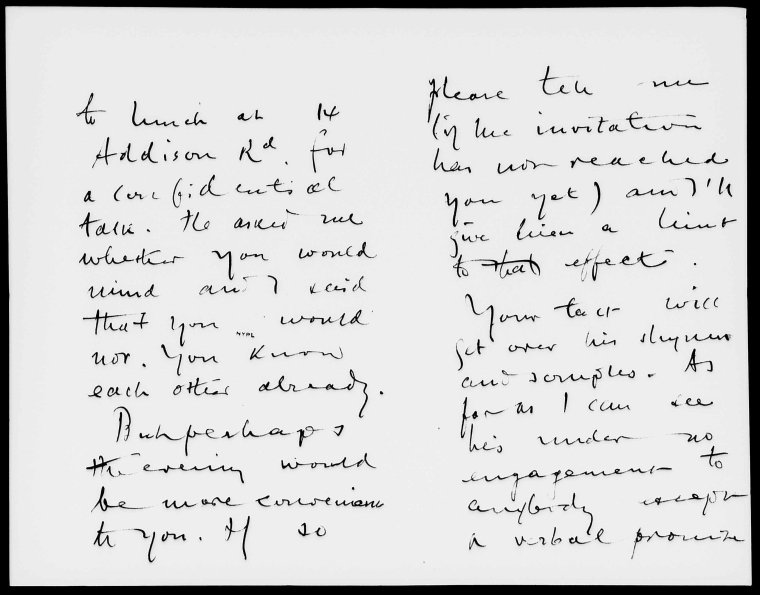 to lunch at 14
Addison Rd. for
a confidential
talk. He asked me
whether you would
mind and I said
that you would
not. You know
each other already.
But perhaps
the evening would
be more convenient
to you. If so
please tell me
(if the invitation
has not reached
you yet) and I'll
give him a hint
to that effect.
Your tact will
get over his shyness
and scruples. As
far as I can see
he's under no
engagement to
anybody except
a verbal promise